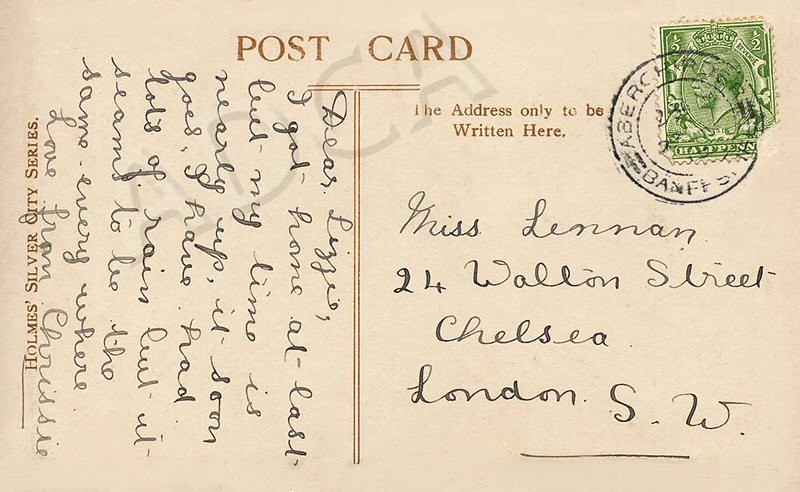 POST CARD
The Address only to be
Written Here.
HOLMES' SILVER CITY SERIES.
Dear Lizzie,
I got home at-last-
but my time is
nearly up, it soon
goes, I have had
lots of rain but it-
seems to be the
same every where
Love from Chrissie
Miss Lennan
24 Walton Street
Chelsea
London. S. W.
HALFPENNY
BANFFS.